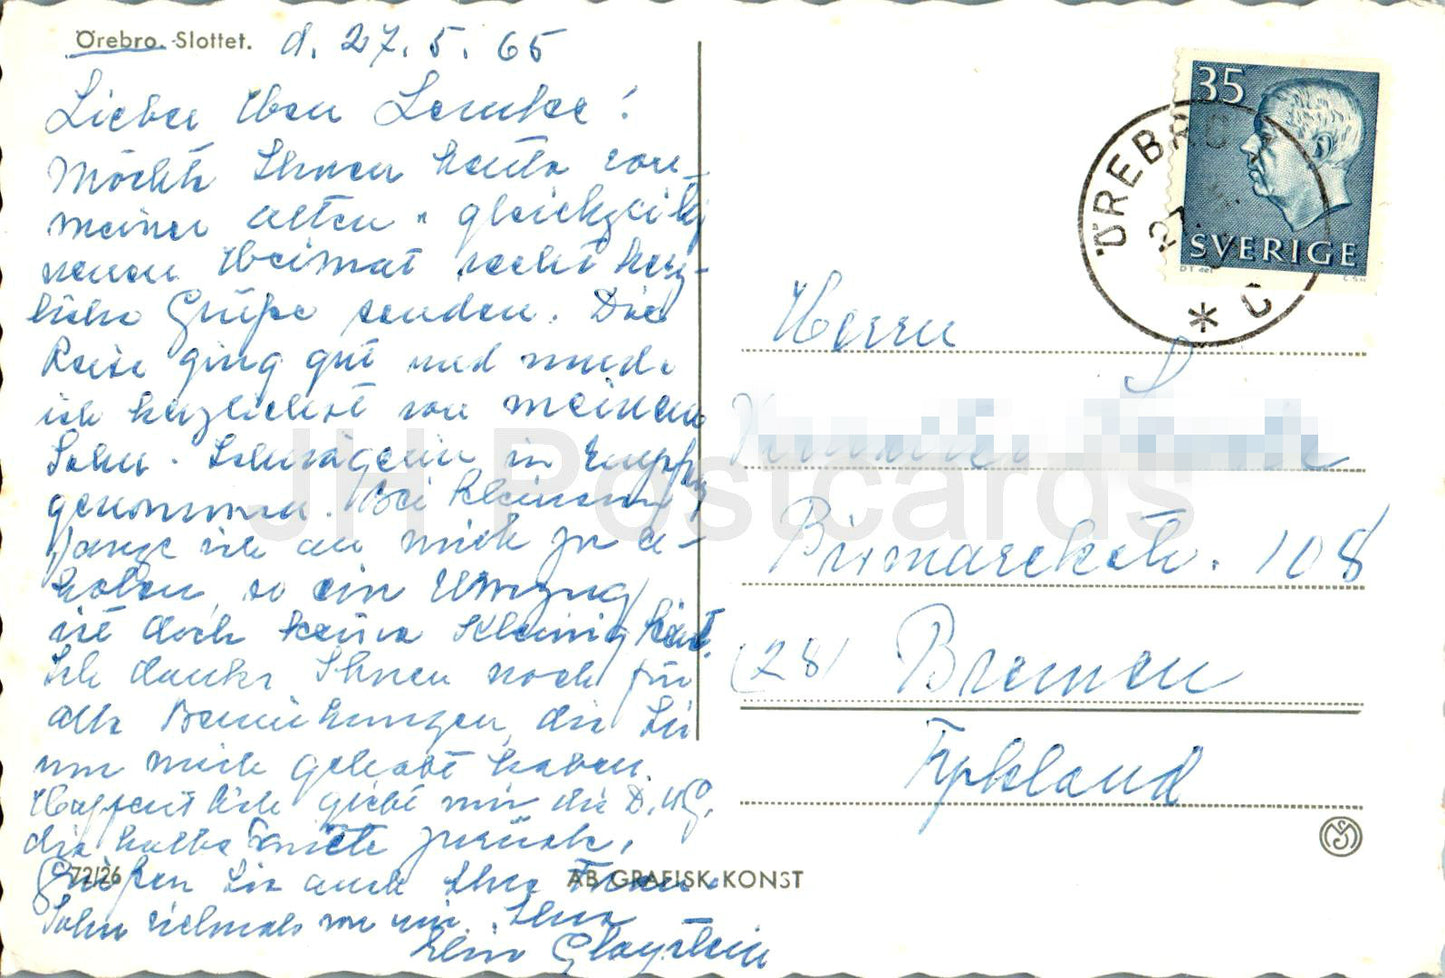 Örebro. Slottet. d. 27. 5. 65
Lieber Herr Lemke!
Möchte Ihnen heute von
meiner alten u. gleichzeitig
neuen Heimat recht herz-
liche Grüße senden. Die
Reise ging gut und wurde
ich herzlichst von meinem
Sohn u. Schwägerin in Empfang
genommen. Bei Kleinem
fange ich an mich zu er-
holen, so ein Umzug
ist doch keine Kleinigkeit.
Ich danke Ihnen noch für
alle Bemühungen, die Sie
um mich gehabt haben.
Hoffentlich giebt mir die D.A.G.
die halbe Miete zurück.
Grüßen Sie auch Ihre Frau u.
Sohn vielmals von mir. Ihre
72/26
AB GRAFISK KONST
35
SVERIGE
ÖREBRO
27
Herrn
Bismarckstr. 108
(28) Bremen
Tyskland
JH Postcards